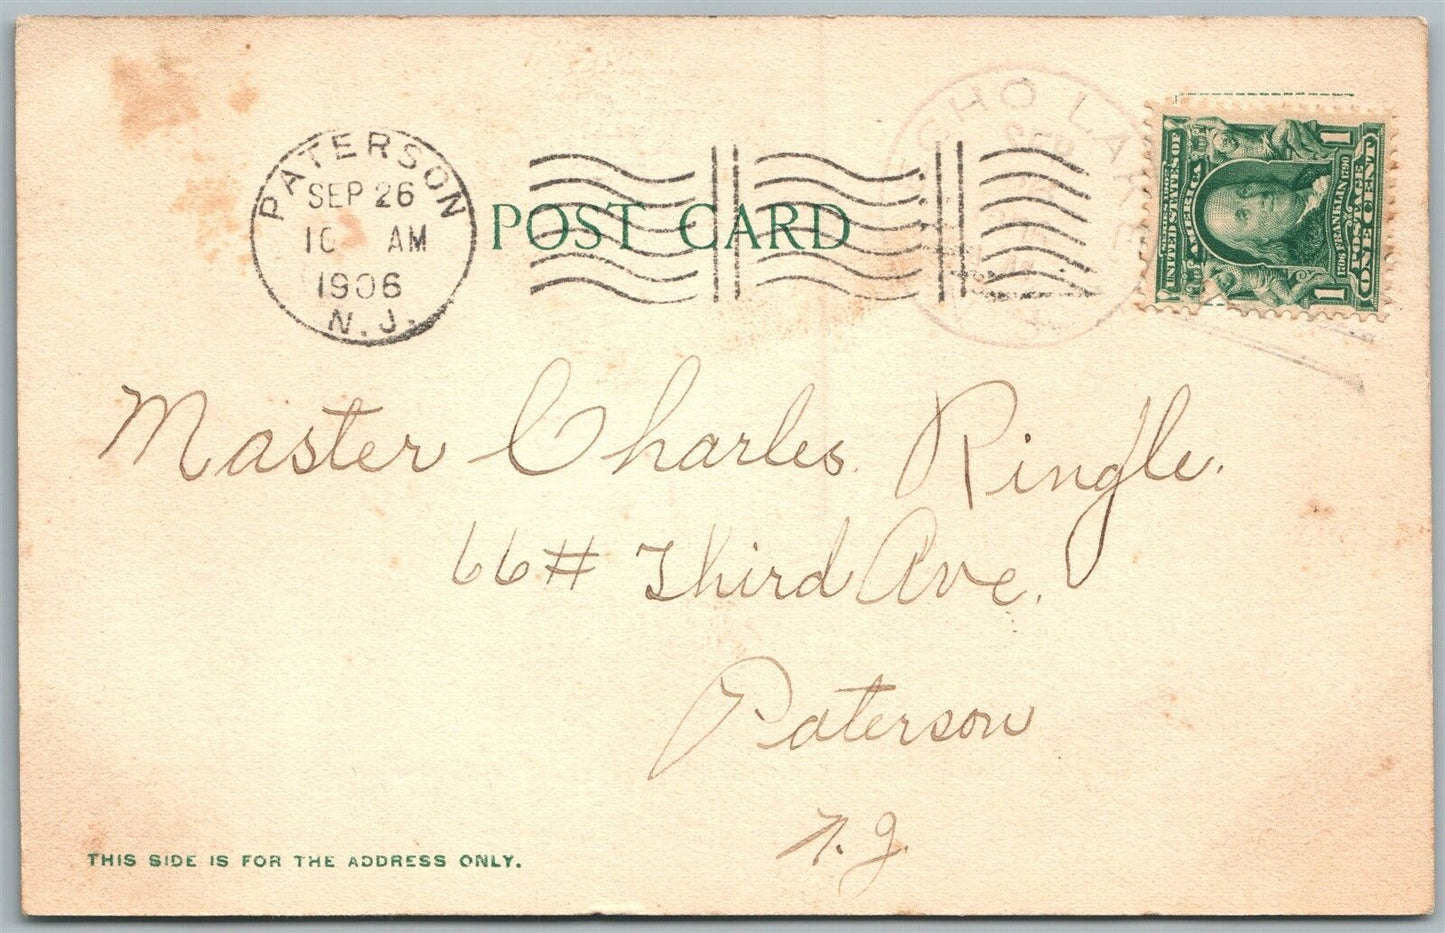 PATERSON
SEP 26
AM
1906
N.J.
POST CARD
ECHO LAKE
SEP
UNITED STATES OF
AMERICA
1
1
1706 FRANKLIN 1790
POSTAGE
ONE CENT
Master Charles Ringle.
66# Third Ave.
Paterson
N.J.
THIS SIDE IS FOR THE ADDRESS ONLY.